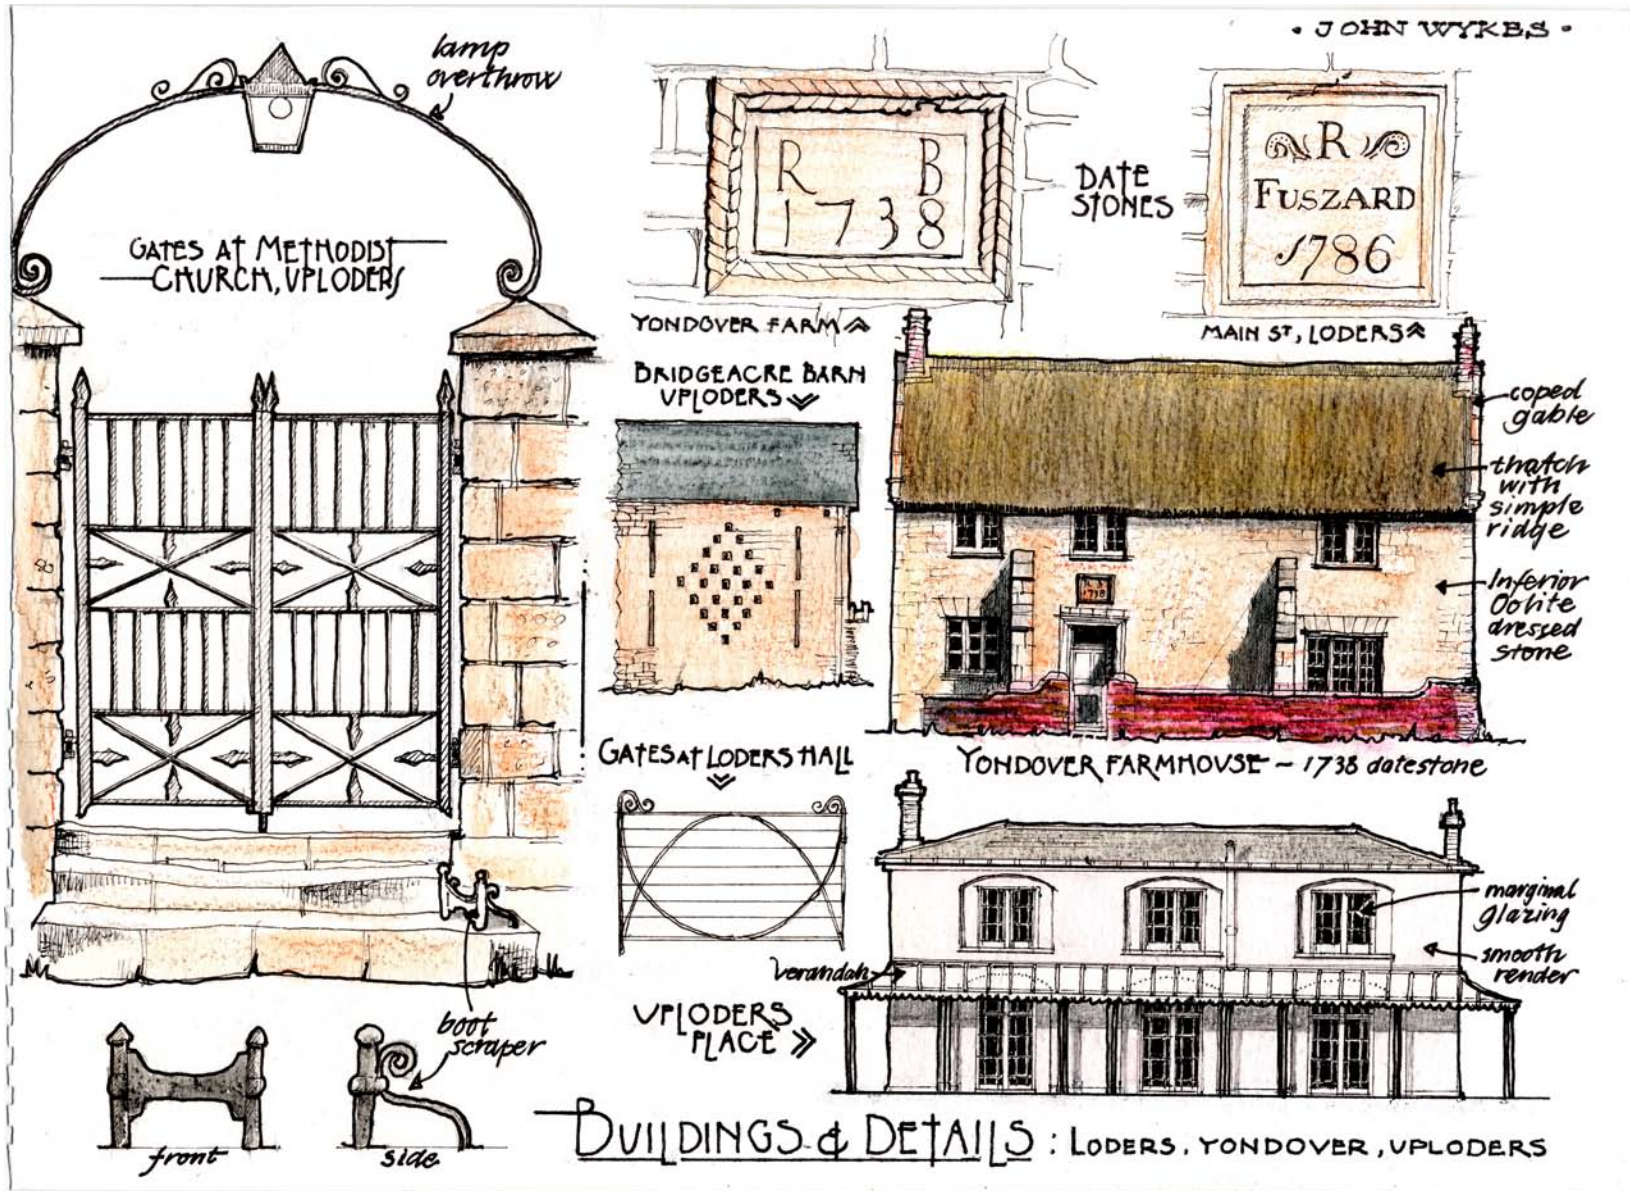 · JOHN WYKES ·
lamp
overthrow
GATES AT METHODIST
CHURCH, UPLODERS
R B
1738
YONDOVER FARM
DATE
STONES
R
FUSZARD
1786
MAIN ST, LODERS
BRIDGEACRE BARN
UPLODERS
coped
gable
thatch
with
simple
ridge
Inferior
Oolite
dressed
stone
1738
YONDOVER FARMHOUSE ~ 1738 datestone
GATES AT LODERS HALL
marginal
glazing
smooth
render
verandah
UPLODERS
PLACE
boot
scraper
front
side
BUILDINGS & DETAILS : LODERS, YONDOVER, UPLODERS